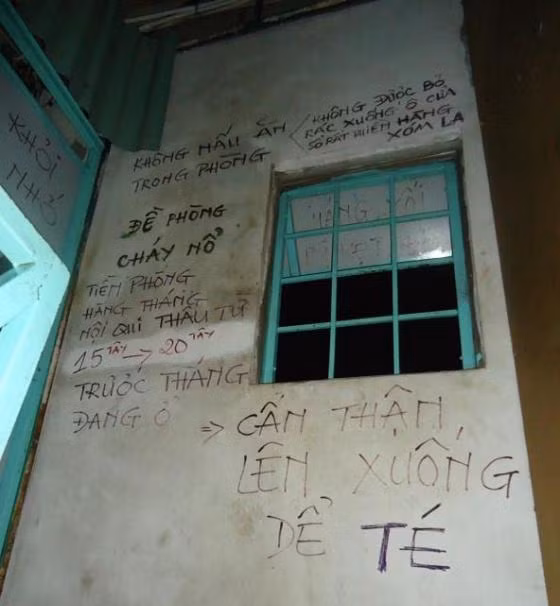 KHÔNG NẤU ĂN
TRONG PHÒNG
KHÔNG ĐƯỢC BỎ
RÁC XUỐNG Ô CỬA
SỔ RẤT PHIỀN HÀNG
XÓM LA
ĐỀ PHÒNG
CHÁY NỔ
TIỀN PHÒNG
HÀNG THÁNG
NỘI QUI THÂU TỪ
15 TÂY → 20 TÂY
TRƯỚC THÁNG
ĐANG Ở
⇒ CẨN THẬN
LÊN XUỐNG
DỂ TÉ
KHỎI
NHỚ